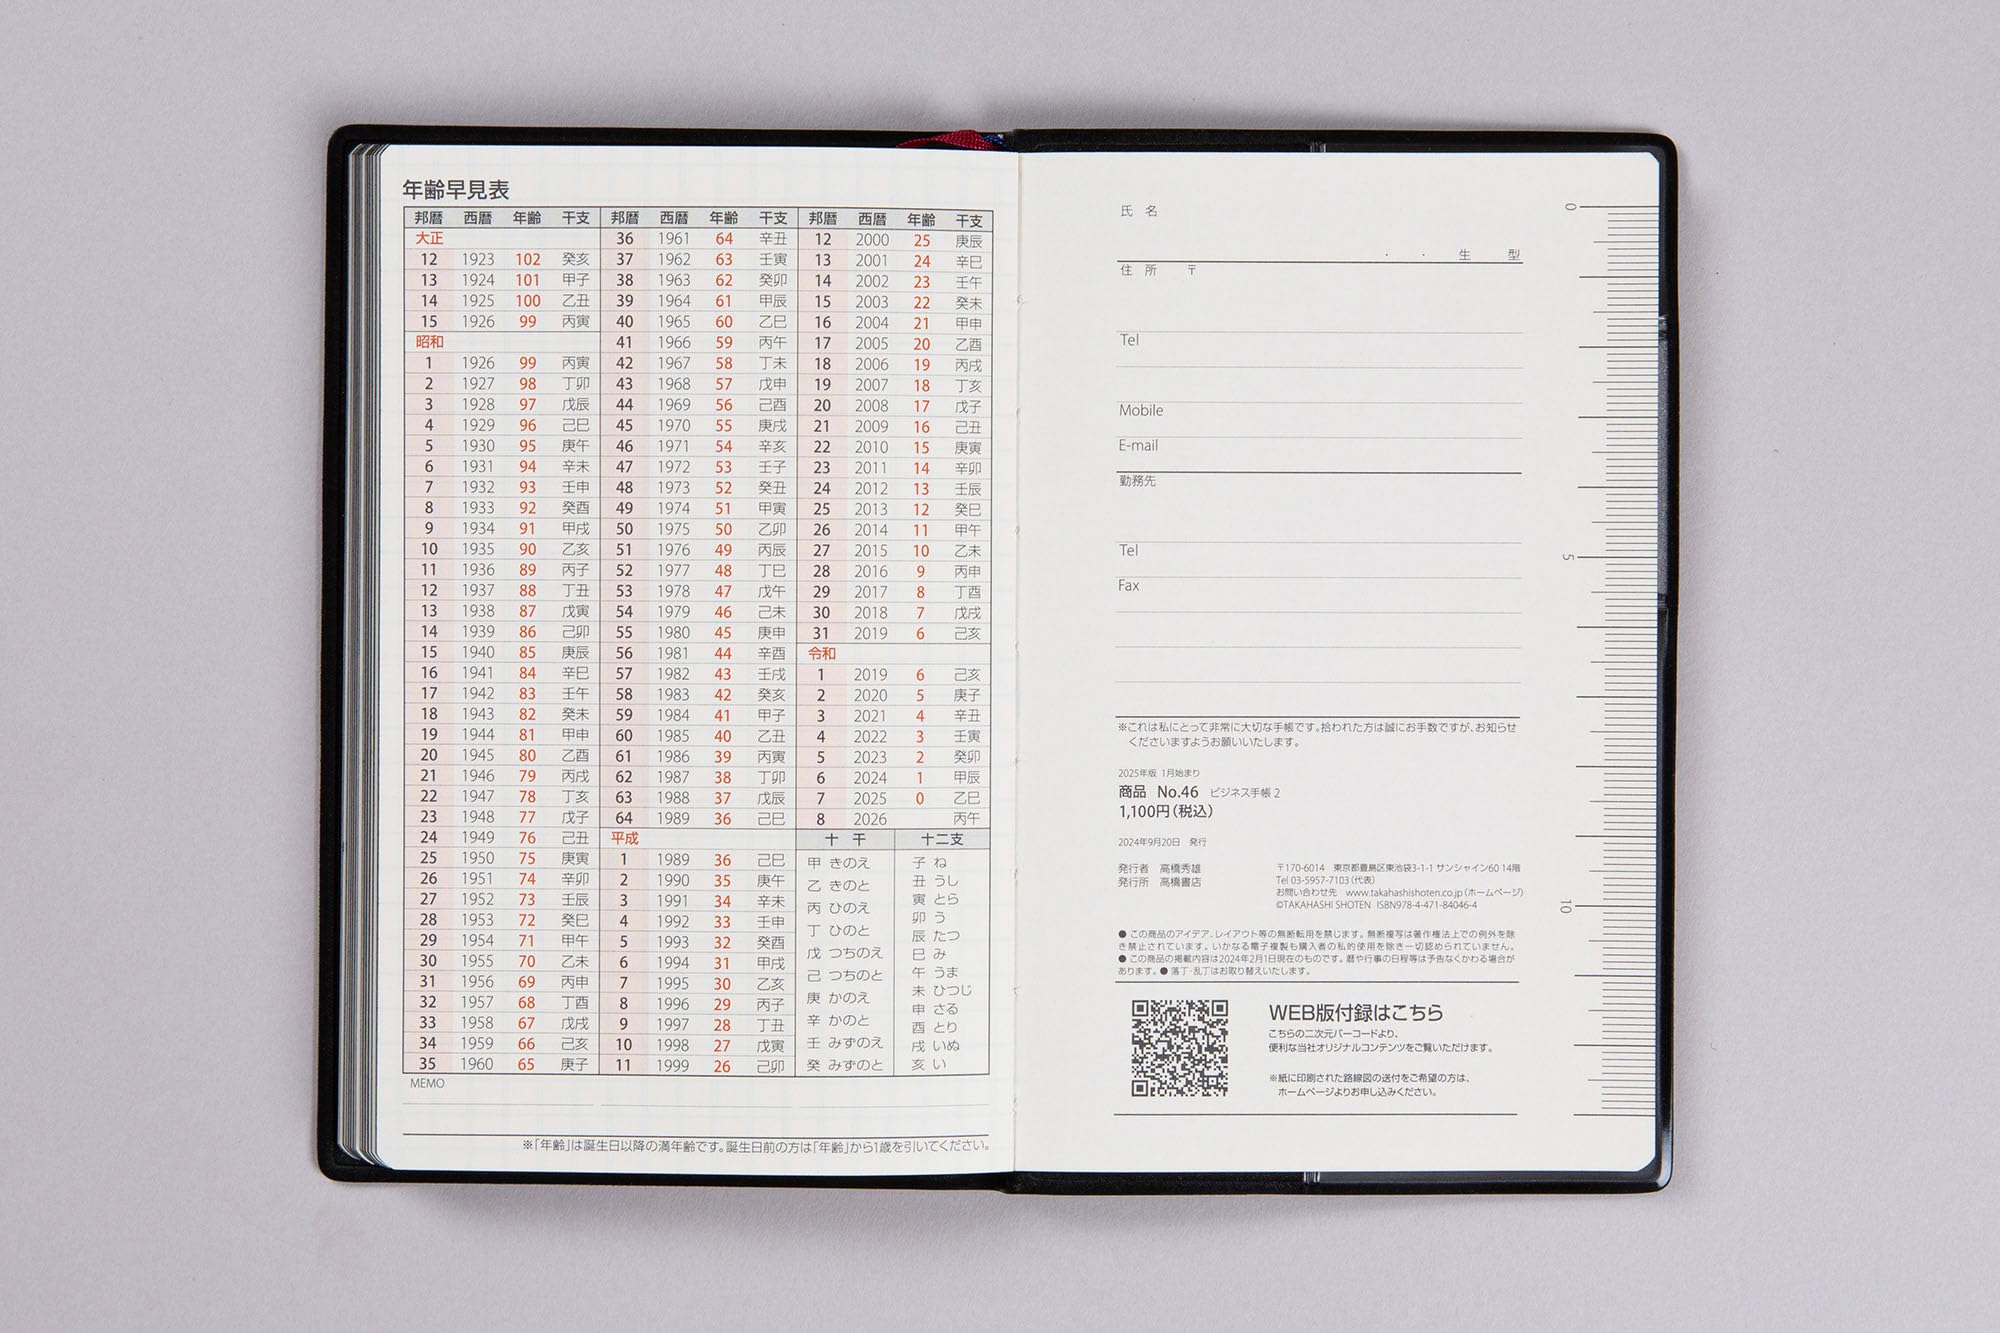 年齢早見表
邦暦 西暦 年齢 干支
大正
12 1923 102 癸亥
13 1924 101 甲子
14 1925 100 乙丑
15 1926 99 丙寅
昭和
1 1926 99 丙寅
2 1927 98 丁卯
3 1928 97 戊辰
4 1929 96 己巳
5 1930 95 庚午
6 1931 94 辛未
7 1932 93 壬申
8 1933 92 癸酉
9 1934 91 甲戌
10 1935 90 乙亥
11 1936 89 丙子
12 1937 88 丁丑
13 1938 87 戊寅
14 1939 86 己卯
15 1940 85 庚辰
16 1941 84 辛巳
17 1942 83 壬午
18 1943 82 癸未
19 1944 81 甲申
20 1945 80 乙酉
21 1946 79 丙戌
22 1947 78 丁亥
23 1948 77 戊子
24 1949 76 己丑
25 1950 75 庚寅
26 1951 74 辛卯
27 1952 73 壬辰
28 1953 72 癸巳
29 1954 71 甲午
30 1955 70 乙未
31 1956 69 丙申
32 1957 68 丁酉
33 1958 67 戊戌
34 1959 66 己亥
35 1960 65 庚子
邦暦 西暦 年齢 干支
36 1961 64 辛丑
37 1962 63 壬寅
38 1963 62 癸卯
39 1964 61 甲辰
40 1965 60 乙巳
41 1966 59 丙午
42 1967 58 丁未
43 1968 57 戊申
44 1969 56 己酉
45 1970 55 庚戌
46 1971 54 辛亥
47 1972 53 壬子
48 1973 52 癸丑
49 1974 51 甲寅
50 1975 50 乙卯
51 1976 49 丙辰
52 1977 48 丁巳
53 1978 47 戊午
54 1979 46 己未
55 1980 45 庚申
56 1981 44 辛酉
57 1982 43 壬戌
58 1983 42 癸亥
59 1984 41 甲子
60 1985 40 乙丑
61 1986 39 丙寅
62 1987 38 丁卯
63 1988 37 戊辰
64 1989 36 己巳
平成
1 1989 36 己巳
2 1990 35 庚午
3 1991 34 辛未
4 1992 33 壬申
5 1993 32 癸酉
6 1994 31 甲戌
7 1995 30 乙亥
8 1996 29 丙子
9 1997 28 丁丑
10 1998 27 戊寅
11 1999 26 己卯
邦暦 西暦 年齢 干支
12 2000 25 庚辰
13 2001 24 辛巳
14 2002 23 壬午
15 2003 22 癸未
16 2004 21 甲申
17 2005 20 乙酉
18 2006 19 丙戌
19 2007 18 丁亥
20 2008 17 戊子
21 2009 16 己丑
22 2010 15 庚寅
23 2011 14 辛卯
24 2012 13 壬辰
25 2013 12 癸巳
26 2014 11 甲午
27 2015 10 乙未
28 2016 9 丙申
29 2017 8 丁酉
30 2018 7 戊戌
31 2019 6 己亥
令和
1 2019 6 己亥
2 2020 5 庚子
3 2021 4 辛丑
4 2022 3 壬寅
5 2023 2 癸卯
6 2024 1 甲辰
7 2025 0 乙巳
8 2026 丙午
十 干
甲 きのえ
乙 きのと
丙 ひのえ
丁 ひのと
戊 つちのえ
己 つちのと
庚 かのえ
辛 かのと
壬 みずのえ
癸 みずのと
十二支
子 ね
丑 うし
寅 とら
卯 う
辰 たつ
巳 み
午 うま
未 ひつじ
申 さる
酉 とり
戌 いぬ
亥 い
MEMO
※「年齢」は誕生日以降の満年齢です。誕生日前の方は「年齢」から1歳を引いてください。
氏 名
・ ・ 生 型
住 所 〒
Tel
Mobile
E-mail
勤務先
Tel
Fax
※これは私にとって非常に大切な手帳です。拾われた方は誠にお手数ですが、お知らせ
くださいますようお願いいたします。
2025年版 1月始まり
商品 No.46 ビジネス手帳 2
1,100円(税込)
2024年9月20日 発行
発行者 高橋秀雄
発行所 高橋書店
〒170-6014 東京都豊島区東池袋3-1-1 サンシャイン60 14階
Tel 03-5957-7103(代表)
お問い合わせ先 www.takahashishoten.co.jp(ホームページ)
©TAKAHASHI SHOTEN ISBN978-4-471-84046-4
● この商品のアイデア、レイアウト等の無断転用を禁じます。無断複写は著作権法上での例外を除
き禁止されています。いかなる電子複製も購入者の私的使用を除き一切認められていません。
● この商品の掲載内容は2024年2月1日現在のものです。暦や行事の日程等は予告なくかわる場合が
あります。● 落丁・乱丁はお取り替えいたします。
WEB版付録はこちら
こちらの二次元バーコードより、
便利な当社オリジナルコンテンツをご覧いただけます。
※紙に印刷された路線図の送付をご希望の方は、
ホームページよりお申し込みください。
0
5
10